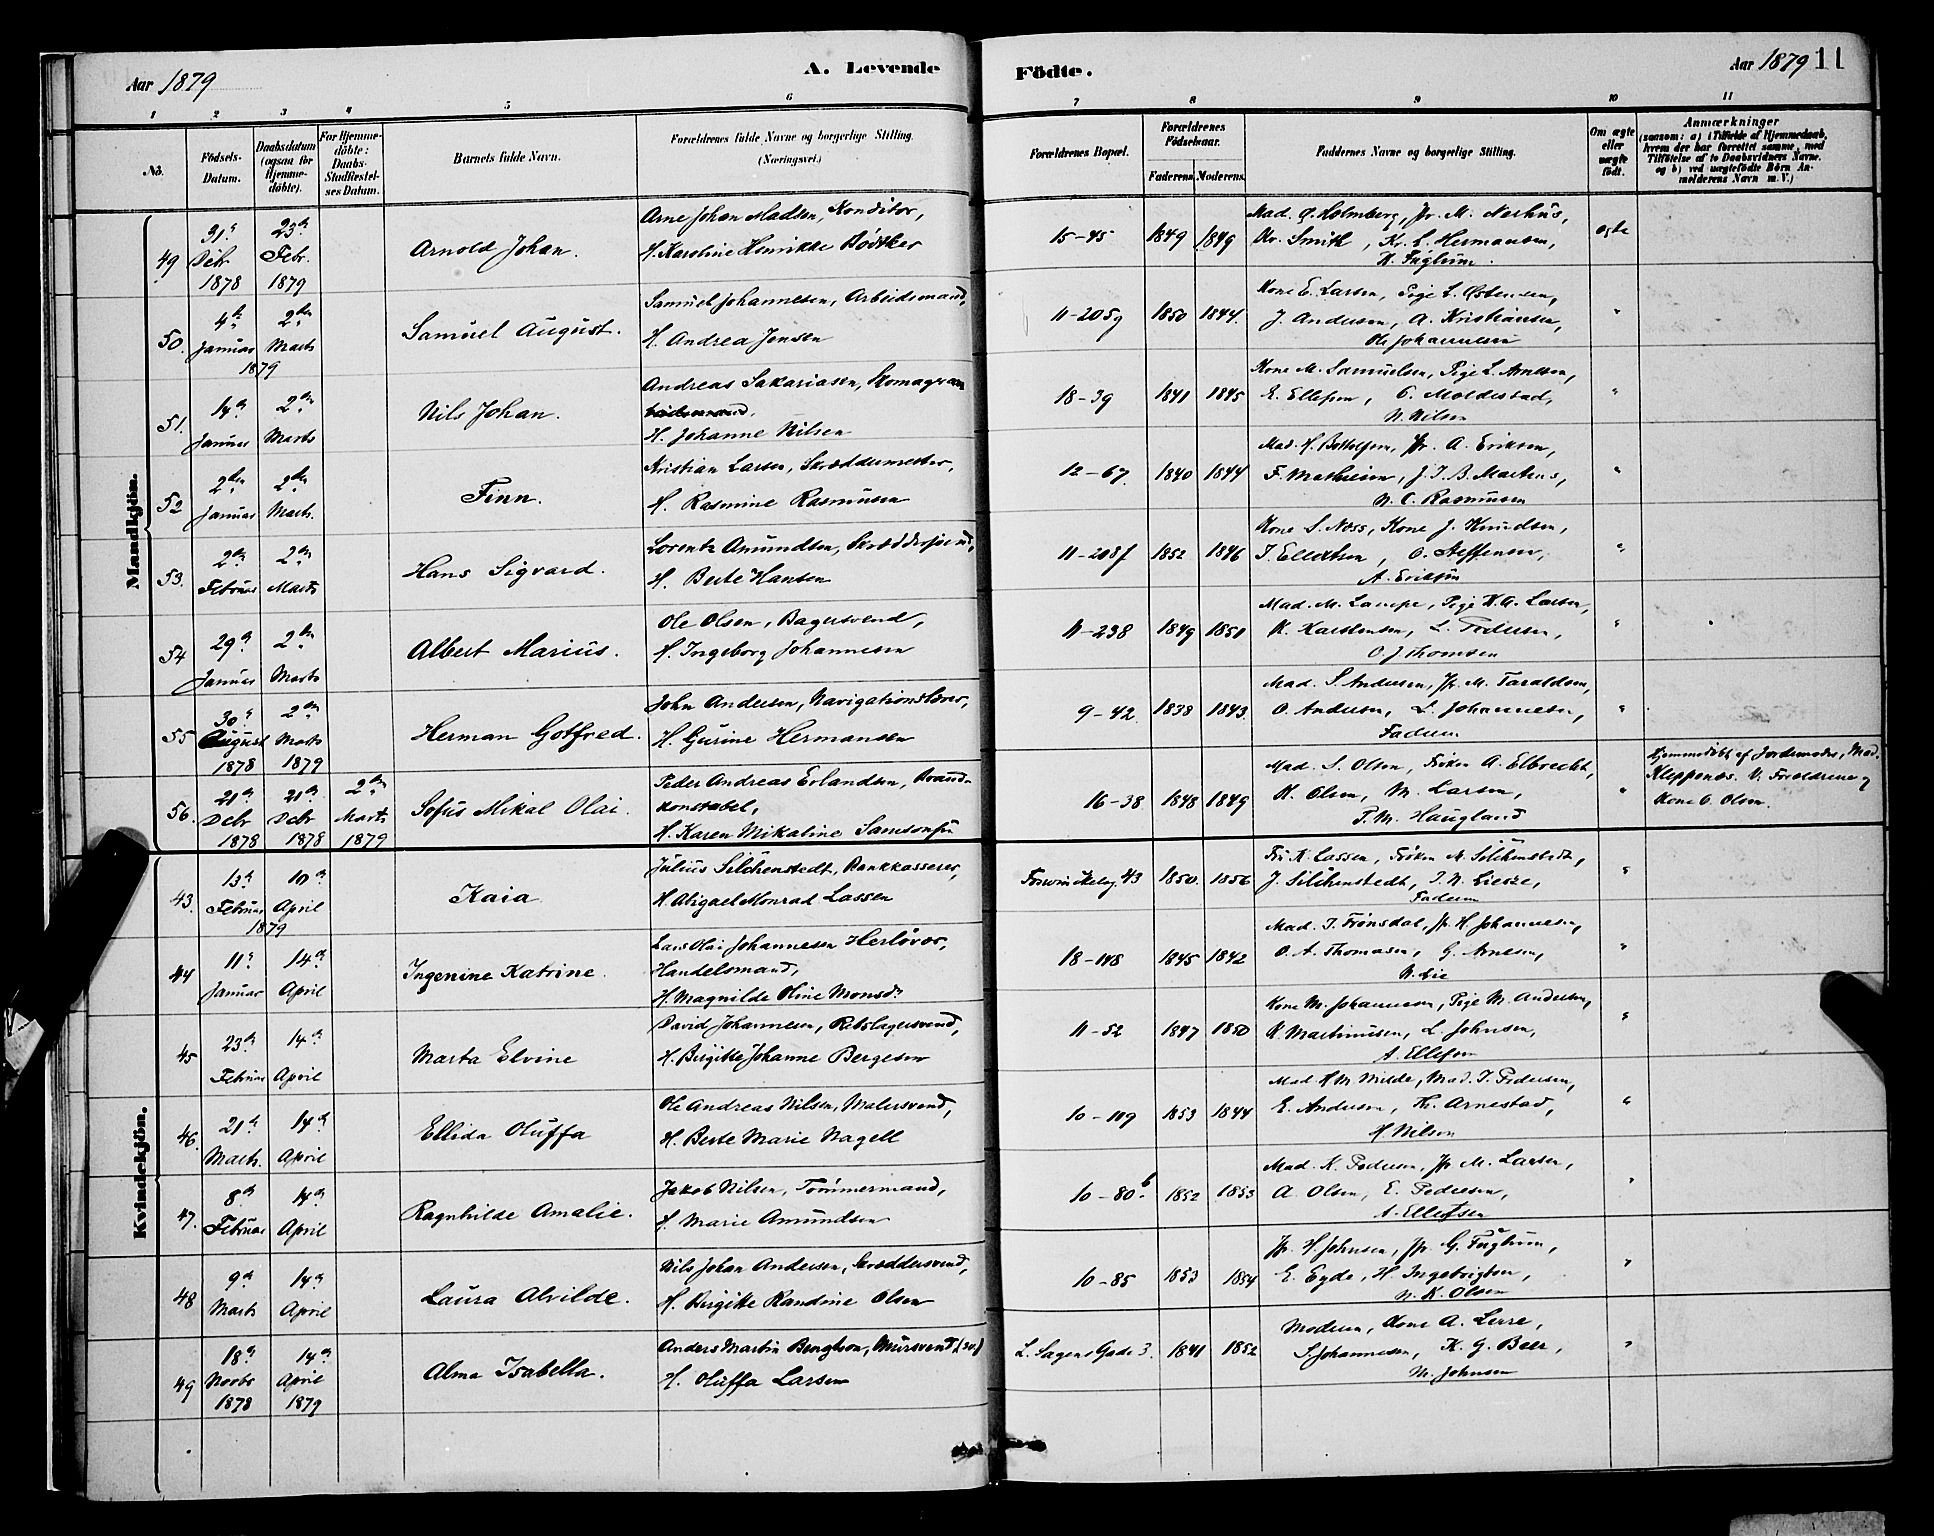 Aar 1879
A. Levende
Födte.
Aar 1879
11
1 2 3 4 5 6 7 8 9 10 11
No.
Födsels-Datum.
Daabsdatum (ogsaa for Hjemmedöbte).
For Hjemmedöbte: Daabs-Stadfæstelses Datum.
Barnets fulde Navn.
Forældrenes fulde Navne og borgerlige Stilling. (Næringsvei.)
Forældrenes Bopæl.
Forældrenes Födselsaar.
Faderens. Moderens.
Faddernes Navne og borgerlige Stilling.
Om ægte eller uægte födt.
Anmærkninger
(saasom: a) i Tilfælde af Hjemmedaab,
hvem der har forrettet samme, med
Tilföielse af to Daabsvidners Navne.
og b) ved uægtefödte Börn Anmelderens Navn m. V.)
Mandkjön.
49 31te Debr 1878 23de Febr. 1879 Arnold Johan.
Arne Johan Madsen, Konditor,
H. Karoline Henrikke Bödtker
15-45 1849 1849
Mad. G. Holmberg, Jfr. M. Nerhus,
Kr. Smith, Kr. L. Hermansen,
K. Fuglum.
ægte
50. 4de Januar 1879 2den Marts Samuel August.
Samuel Johannesen, Arbeidsmand,
H. Andrea Jensen
11-205g 1850 1844.
Kone E. Larsen, Pige L. Östensen,
J. Andersen, A. Kristiansen,
Ole Johannesen
"
51. 14de Januar 2den Marts Nils Johan.
Andreas Sakariasen,
H. Johanne Nilsen
18-39 1841 1845
Kone M. Samuelsen, Pige L. Arnesen,
E. Ellefsen, O. Moldestad,
N. Nilsen
"
52 2den Januar 2den Marts. Finn.
Kristian Larsen, Skræddermester,
H. Rasmine Rasmusen
12-67. 1840 1844
Mad. H. Bottolfsen, Jfr. A. Eriksen,
F. Mathiesen, J. J. B. Martens,
N. C. Rasmusen
"
53. 2den Februar 2den Marts Hans Sigvard.
Lorentz Amundsen, Skræddersvend,
H. Berte Hansen
11-208f 1852 1846
Kone S. Næss, Kone J. Knudsen,
T. Ellertsen, O. Steffensen,
A. Eriksen
"
54 29de Januar 2den Marts Albert Marius.
Ole Olsen, Bagersvend,
H. Ingeborg Johannesen
11-238 1849 1851
Mad. M. Lampe, Pige K. A. Larsen,
K. Karstensen, L. Pedersen,
O. J. Thomsen
"
55 30te August 1878 2den Marts 1879 Herman Gotfred.
John Andersen, Navigationslærer,
H. Gurine Hermansen
9-42. 1838 1843.
Mad. S. Andersen, Jfr. M. Taraldsen,
O. Andersen, L. Johannesen,
Faderen
"
56. 21de Debr 1878 21de Debr 1878 2den Marts 1879 Sofus Mikal Olai.
Peder Andreas Erlandsen, Brandkonstabel,
H. Karen Mikaline Samsonsen
16-38 1848 1849
Mad. S. Olsen, Fröken A. Elbrecht,
K. Olsen, M. Larsen,
P. M. Haugland
"
Hjemmedöbt af Jordemoder, Mad.
Kleppenæs. V: Forældrene og
Kone O. Olsen.
Kvindekjön.
43. 13de Februar 1879 10de April Kaia
Julius Silchenstedt, Bankkasserer,
H. Abigael Monrad Lassen
43 1850. 1856
Fru K. Lassen, Fröken M. Silchenstedt,
J. Silchenstedt,
Faderen
"
44 11te Januar 14de April Ingenine Katrine.
Lars Olai Johannesen Herlöver,
Handelsmand,
H. Magnilde Oline Monsdr.
18-148 1845 1842
Mad. J. Frönsdal, Jfr. H. Johannesen,
O. A. Thomasen, G. Arnesen,
N. Lie
"
45 23de Februar 14de April Marta Elvine
David Johannesen, Rebslagersvend,
H. Birgitte Johanne Bergesen
11-52 1847 1850
Kone M. Johannesen, Pige M. Andersen,
K. Martinusen, L. Johnsen,
A. Ellefsen
"
46. 21de Marts. 14de April Ellida Oluffa
Ole Andreas Nilsen, Malersvend,
H. Berte Marie Nagell
10-119 1853 1844
Mad. K. M. Milde, Mad. J. Pedersen,
E. Andersen, Kr. Arnestad,
H. Nilsen
"
47. 8de Februar 14de April Ragnhilde Amalie.
Jakob Nilsen, Tömmermand,
H. Marie Amundsen
10-80b 1852 1853
Mad. K. Pedersen, Jfr. M. Larsen,
A. Olsen, E. Pedersen,
A. Ellefsen
"
48 9de Marts 14de April Laura Alvilde.
Nils Johan Andersen, Skræddersvend,
H. Birgitte Randine Olsen
10-85 1853 1854
Jfr. H. Johnsen, Jfr. G. Fuglum,
E. Eyde, H. Ingebrigtsen,
N. K. Olsen
"
49 18de Novbr 1878 14de April 1879 Alma Isabella.
Anders Martin Bengtson, Mursvend, (sv.)
H. Oluffa Larsen
L. Sagens Gade 3. 1841 1852
Moderen, Kone A. Lerre,
S. Johannesen, K. G. Beer,
M. Johnsen
"